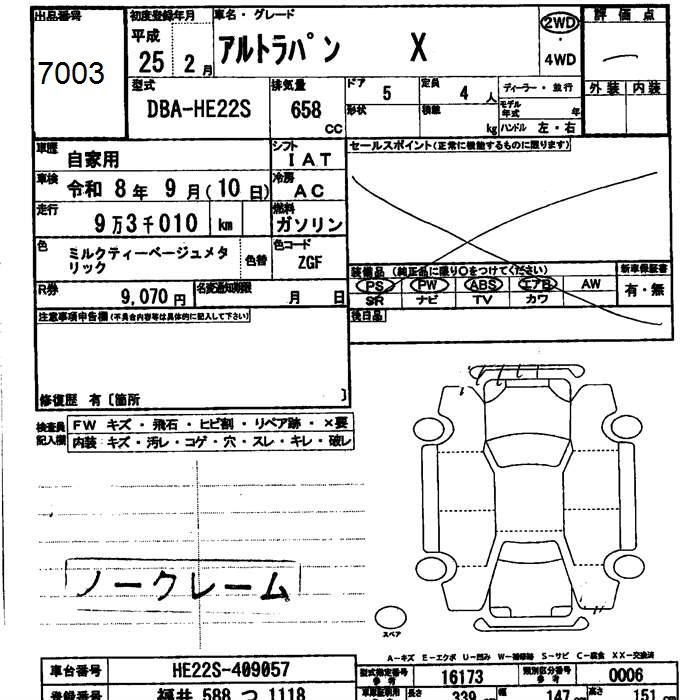 出品番号 初度登録年月 車名・グレード 2WD 評価点
7003 平成 25 2月 アルトラパン X ・ 4WD
外装 内装
型式 DBA-HE22S 排気量 658 CC ドア 5 定員 4 人 ディーラー・並行
形状 積載 kg モデル年式 年
ハンドル 左・右
車歴 自家用 シフト IAT セールスポイント(正常に機能するものに限ります)
車検 令和 8年 9月(10日) 冷房 AC
走行 9万3千010 km 燃料 ガソリン
色 ミルクティーベージュメタ 色替 色コード ZGF
リック
装備品 (純正品に限り○をつけてください) 新車保証書
PS PW ABS エアB AW 有・無
SR ナビ TV カワ
R券 9,070円 名変通知期限 月 日
後日品
注意事項申告欄(不具合内容等は具体的に記入して下さい)
修復歴 有〔箇所 〕
検査員 FW キズ・飛石・ヒビ割・リペア跡・×要
記入欄 内装:キズ・汚レ・コゲ・穴・スレ・キレ・破レ
ノークレーム
スペア
A-キズ E-エクボ U-凹み W-補修跡 S-サビ C-腐食 XX-交換済
車台番号 HE22S-409057 型式指定番号 参考 16173 類別区分番号 参考 0006
登録番号 福井 588 つ 1118 長さ 339 cm 幅 147 cm 高さ 151 cm